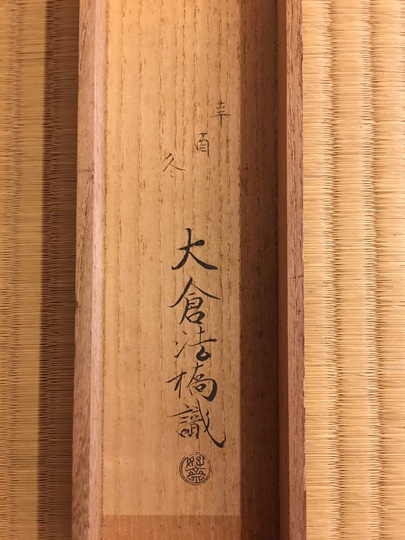 辛酉冬
大倉法橋識